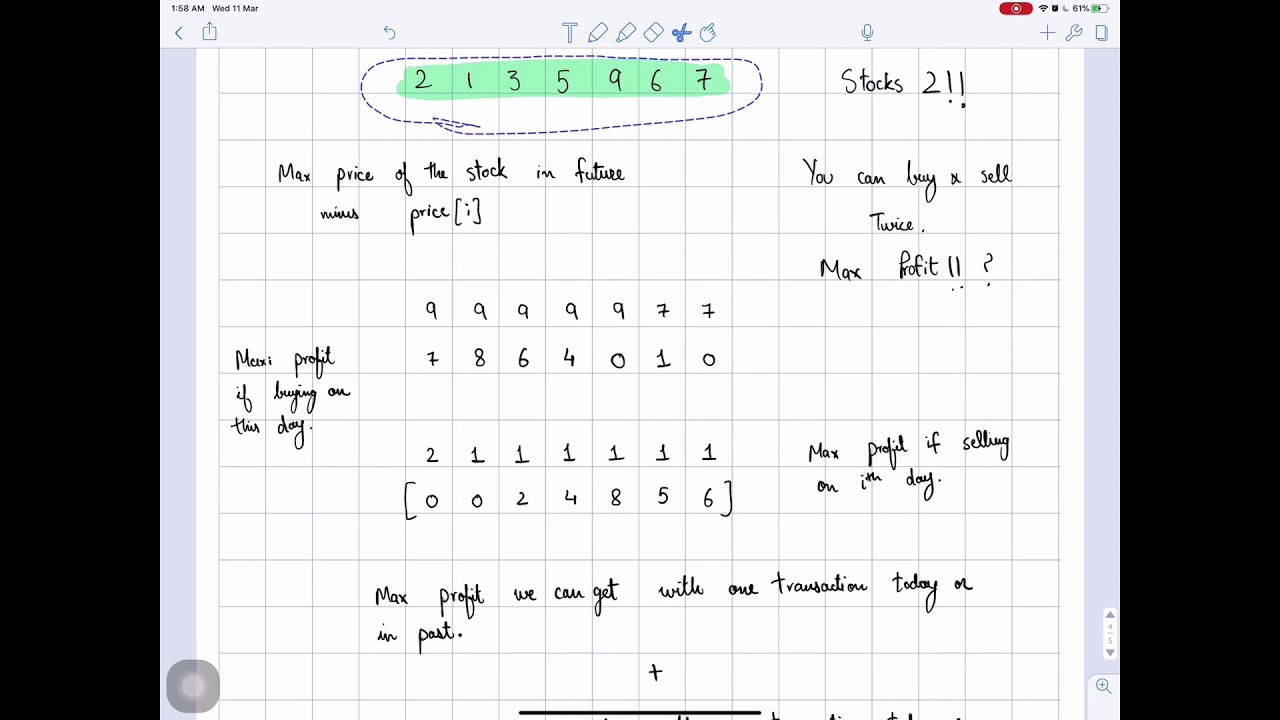 1:58 AM Wed 11 Mar
61%
2 1 3 5 9 6 7
Stocks 2!!
Max price of the stock in future
minus price[i]
You can buy & sell
Twice.
Max Profit!! ?
9 9 9 9 9 7 7
Maxi profit
if buying on
this day.
7 8 6 4 0 1 0
2 1 1 1 1 1 1
[0 0 2 4 8 5 6]
Max profit if selling
on ith day.
Max profit we can get with one transaction today or
in past.
+
4
5